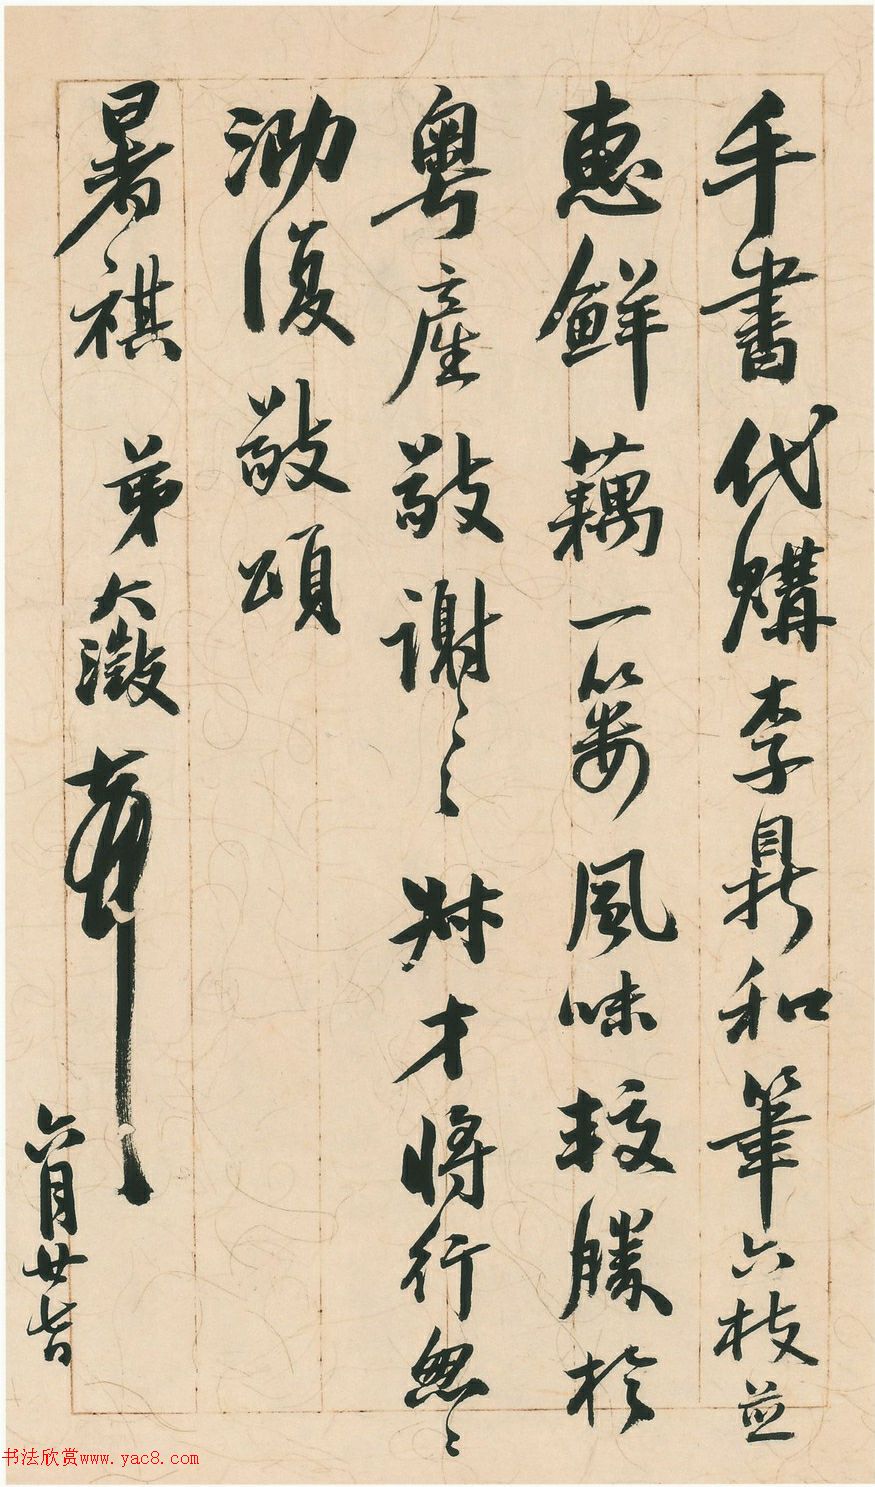 手書代購李鼎和筆六枝並
惠鮮藕一簍風味較勝於
粵產敬謝〻〻 
才將行怱〻
泐復敬頌
暑祺 弟大澂頓
六月廿七日
书法欣赏www.yac8.com